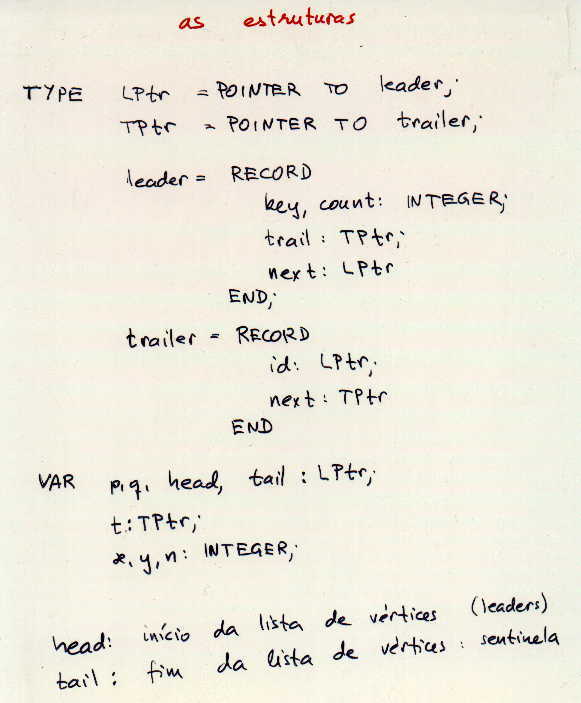 as estruturas
TYPE LPtr = POINTER TO leader;
TPtr = POINTER TO trailer;
leader = RECORD
key, count: INTEGER;
trail: TPtr;
next: LPtr
END;
trailer = RECORD
id: LPtr;
next: TPtr
END
VAR p,q, head, tail: LPtr;
t: TPtr;
x,y,n: INTEGER;
head: início da lista de vértices (leaders)
tail: fim da lista de vértices: sentinela